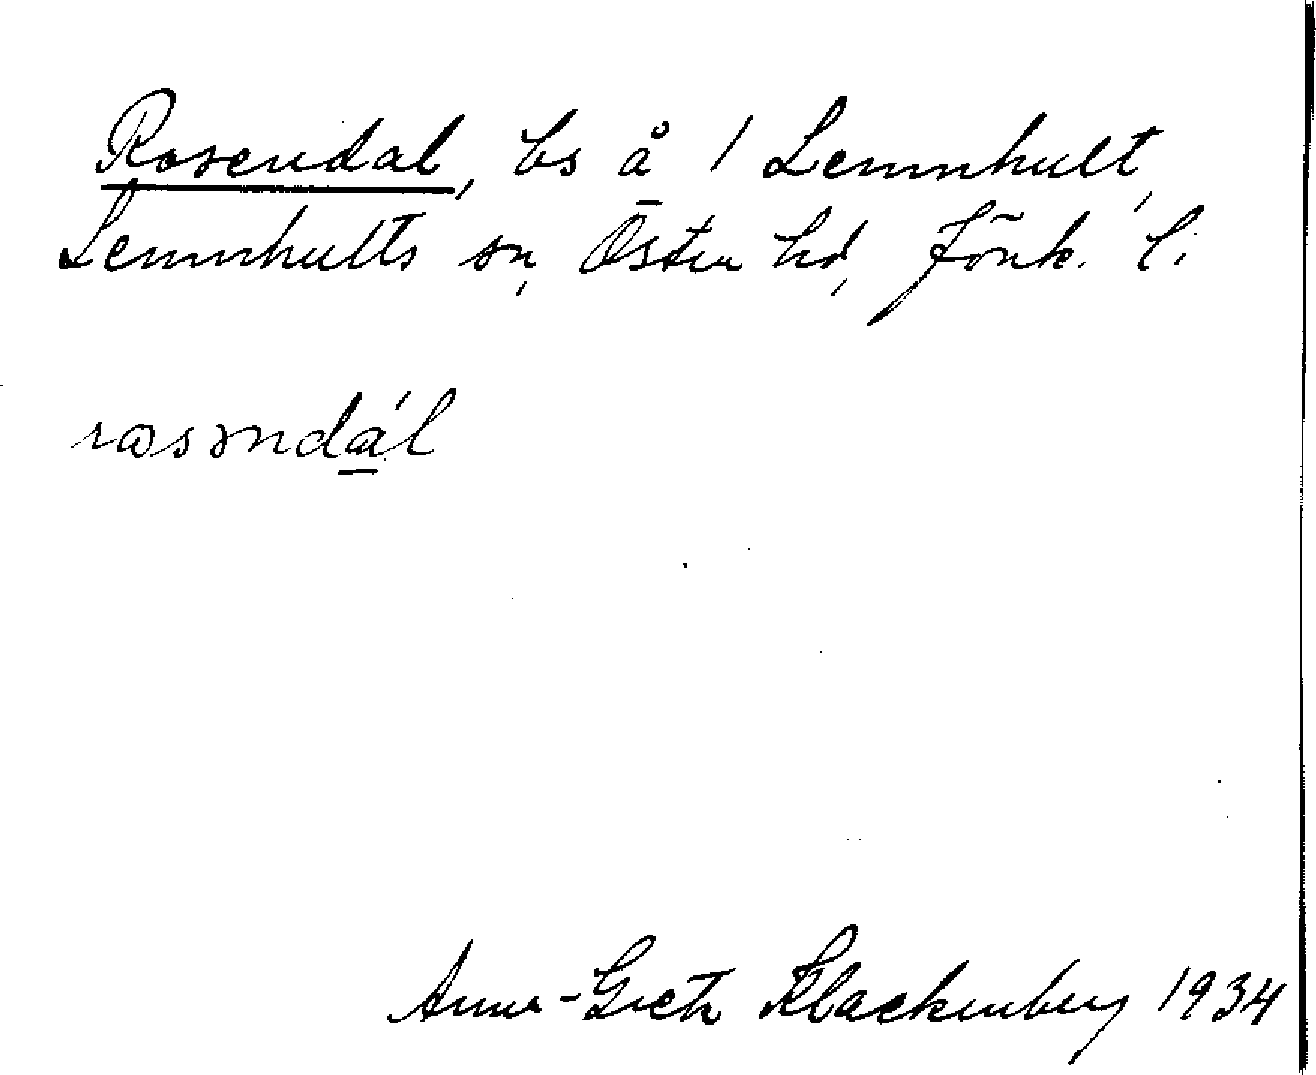 Rosendal, bs å 1 Lemnhult,
Lemnhults sn, Östra hd, Jönk. l.
rosəndál
Anna-Greta Klackenberg 1934